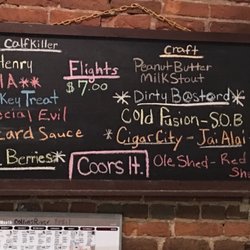 Calfkiller
Henry
IA**
key Treat
ecial Evil
ard Sauce
Berries*
Flights
$7.00
Coors lt.
Craft
Peanut Butter
Milk Stout
*Dirty B@st@rd*
Cold Pasion-S.O.B
*Cigar City - Jai Alai
Ole Shed - Red
Sh